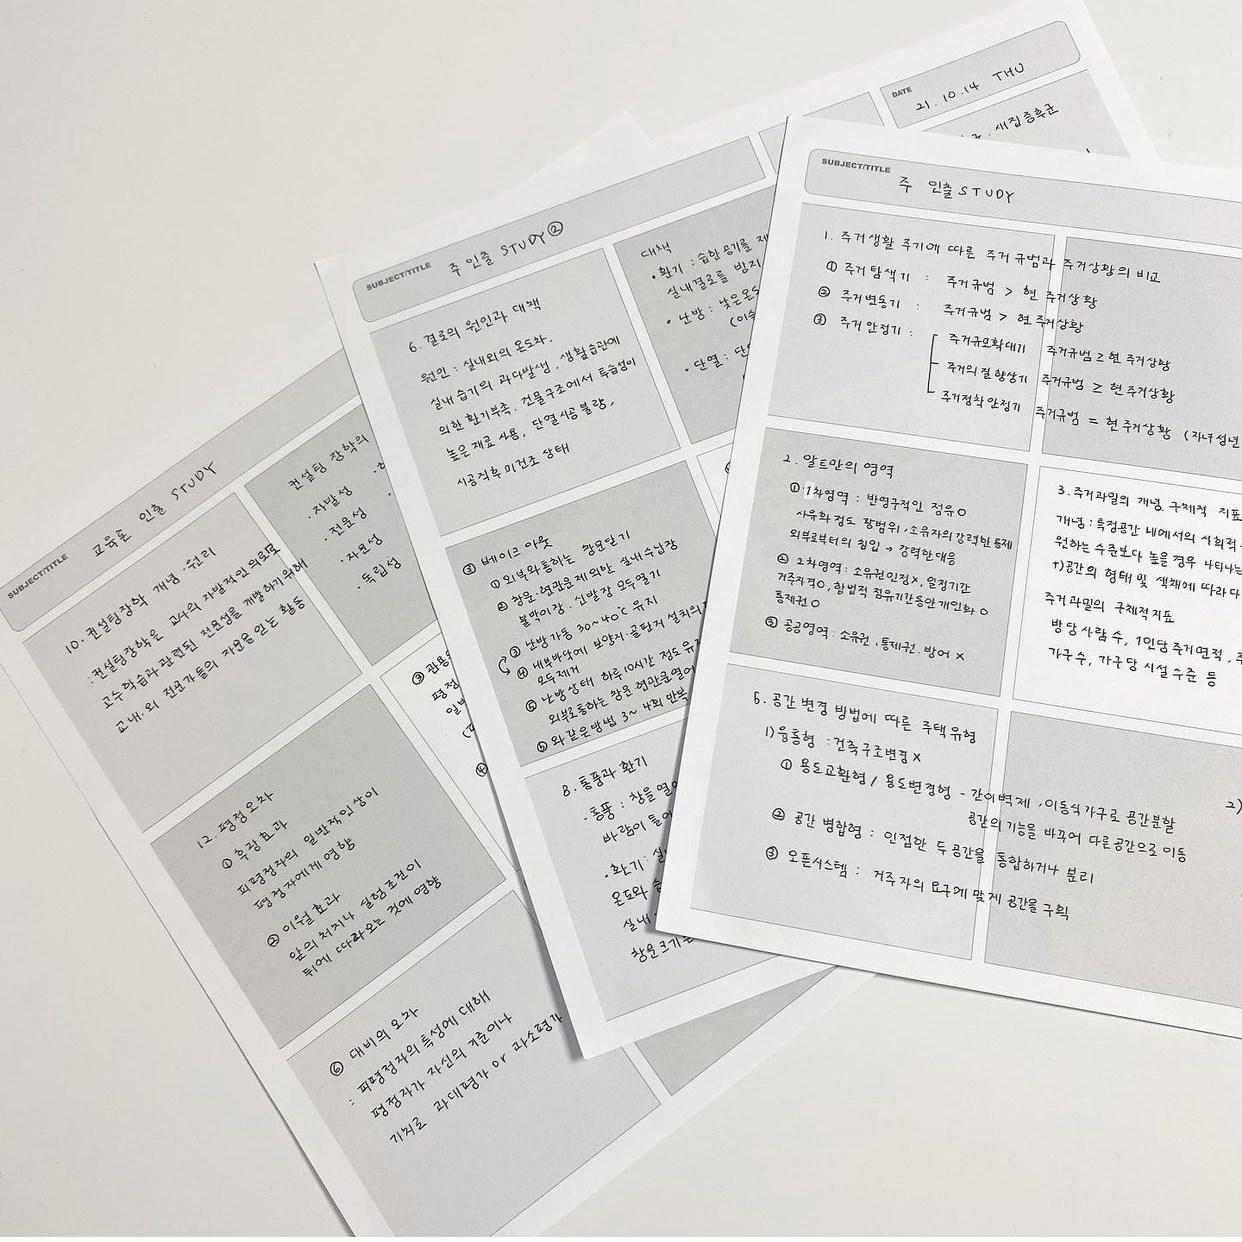 SUBJECT/TITLE
주 인출 STUDY
1. 주거생활 주기에 따른 주거규범과 주거상황의 비교
① 주거탐색기 : 주거규범 > 현 주거상황
② 주거변동기 : 주거규범 > 현 주거상황
③ 주거안정기 :
주거규모확대기 주거규범 ≥ 현 주거상황
주거의 질 향상기 주거규범 ≥ 현 주거상황
주거정착안정기 주거규범 = 현 주거상황 (자녀성년
2. 알트만의 영역
① 1차영역 : 반영구적인 점유 O
사유화 정도 광범위, 소유자의 강력한 통제
외부로부터의 침입 → 강력한 대응
② 2차영역 : 소유권인정 X, 일정기간
거주자격 O, 합법적 점유기간동안 개인화 O
통제권 O
③ 공공영역 : 소유권, 통제권, 방어 X
3. 주거과밀의 개념, 구체적 지표
개념 : 특정공간 내에서의 사회적
원하는 수준보다 높을 경우 나타나는
+) 공간의 형태 및 색채에 따라 다
주거과밀의 구체적지표
방당 사람 수, 1인당 주거면적,
가구수, 가구당 시설수준 등
5. 공간 변경 방법에 따른 주택유형
1) 융통형 : 건축구조변경 X
① 용도교환형 / 용도변경형 - 간이벽체, 이동식가구로 공간분할
공간의 기능을 바꾸어 다른공간으로 이동
② 공간 병합형 : 인접한 두 공간을 통합하거나 분리
③ 오픈시스템 : 거주자의 요구에 맞게 공간을 구획
2)
DATE
21. 10. 14 THU
새집증후군
SUBJECT/TITLE
주 인출 STUDY ②
6. 결로의 원인과 대책
원인 : 실내외의 온도차,
실내 습기의 과다발생, 생활습관에
의한 환기부족, 건물구조에서 투습성이
높은 재료 사용, 단열시공 불량,
시공직후 미건조 상태
대책
• 환기 : 습한 공기를 제
실내결로를 방지
• 난방 : 낮은온도
• 단열 :
③ 베이크 아웃
① 외부와통하는 창문닫기
② 창문·현관문제외한 실내수납장
붙박이장, 신발장 모두열기
③ 난방가동 30~40℃ 유지
④ 내부바닥에 보양지·골판지 설치되
모두제거
⑤ 난방상태 하루10시간 정도 유
외부로통하는 창문·현관문열어
⑥ 와 같은방법 3~4회 반복
8. 통풍과 환기
• 통풍 : 창을 열어
바람이 들어
• 환기 : 실
온도와 습
실내
창문크기
SUBJECT/TITLE
교육론 인출 STUDY
10. 컨설팅장학 개념·원리
: 컨설팅장학은 교사의 자발적인 의뢰로
교수학습과 관련된 전문성을 개발하기 위해
교내·외 전문가들의 자문을 얻는 활동
컨설팅 장학의
· 자발성
· 전문성
· 자문성
· 독립성
12. 평정오차
① 후광효과
피평정자의 일반적인상이
평정자에게 영향
② 이월효과
앞의 처치나 실험조건이
뒤에 따라오는 것에 영향
③ 관용의
평정
④
⑥ 대비의 오차
: 피평정자의 특성에 대해
평정자가 자신의 기준이나
가치로 과대평가 or 과소평가